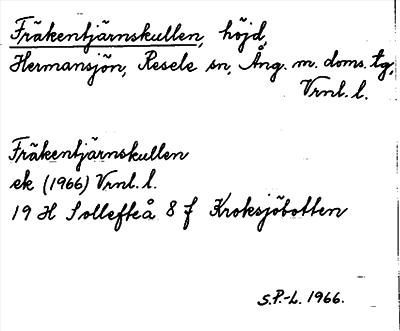 Fräkentjärnskullen, höjd,
Hermansjön, Resele sn, Ång. m. doms. tg,
Vrnl. l.
Fräkentjärnskullen
ek (1966) Vrnl. l.
19 H Sollefteå 8 f Kroksjöbotten
S.P.-L. 1966.